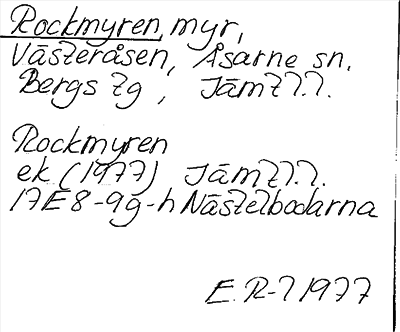 Rockmyren, myr,
Västeråsen, Åsarne sn,
Bergs tg, Jämtl.
Rockmyren
ek (1977) Jämtl.
17E 8-9g-h Nästelbodarna
E. R-l 1977